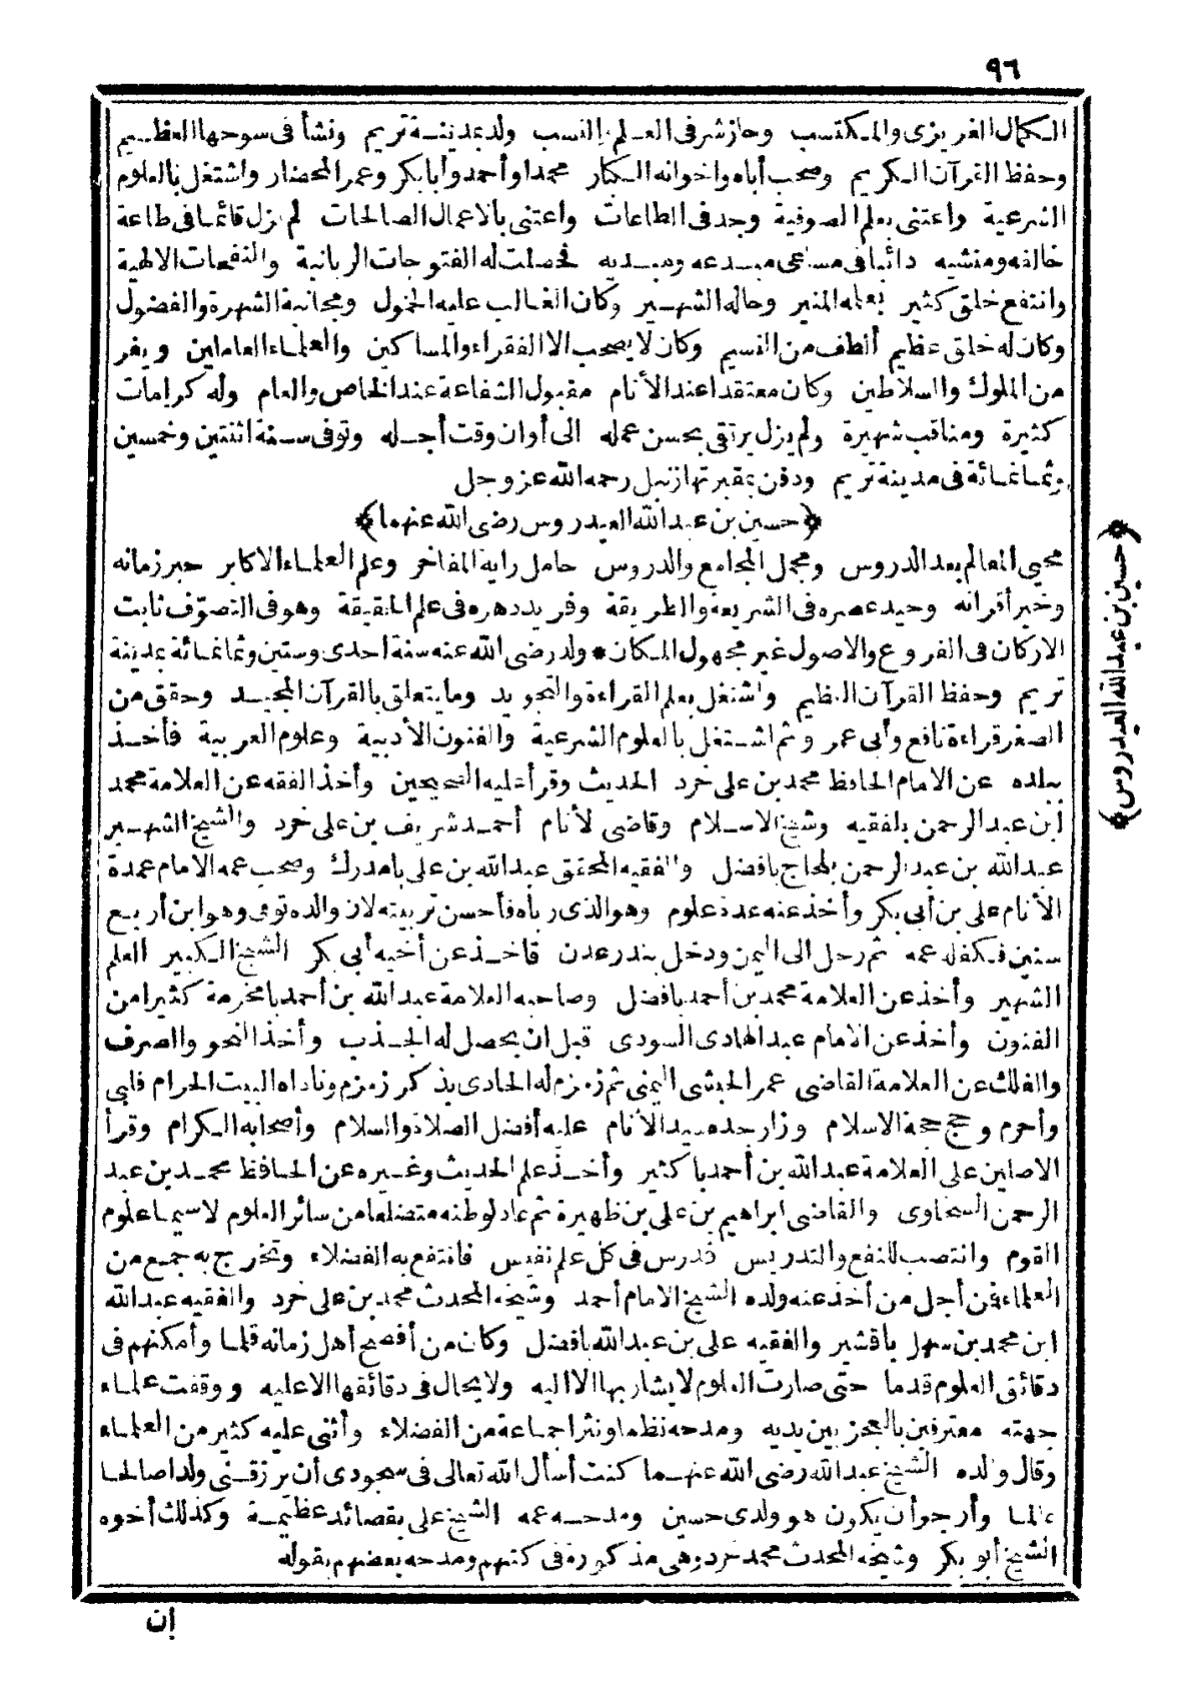 ٩٦
الكمال الغريزى والمكتسب وحاز شرفى العلم والنسب ولد بمدينة تريم ونشأ فى سوحها العظيم
وحفظ القرآن الكريم وصحب أباه واخوانه الكبار محمدا وأحمد وأبا بكر وعمر المحضار واشتغل بالعلوم
الشرعية واعتنى بعلم الصوفية وجد فى الطاعات واعتنى بالاعمال الصالحات لم يزل قائما فى طاعة
خالقه ومنشيه دائبا فى مساعى مبدعه ومبديه فحصلت له الفتوحات الربانية والنفحات الالهية
وانتفع خلق كثير بعلمه المنير وحاله الشهير وكان الغالب عليه الخمول ومجانبة الشهرة والفضول
وكان له خلق عظيم ألطف من النسيم وكان لا يصحب الا الفقراء والمساكين والعلماء العاملين ويفر
من الملوك والسلاطين وكان معتقدا عند الأنام مقبول الشفاعة عند الخاص والعام وله كرامات
كثيرة ومناقب شهيرة ولم يزل يرتقى بحسن عمله الى أوان وقت أجله وتوفى سنة اثنتين وخمسين
وثمانمائة فى مدينة تريم ودفن بمقبرتها زنبل رحمه الله عز وجل
﴿حسين بن عبد الله العيدروس رضى الله عنهما﴾
محيى المعالم بعد الدروس ومجمل المجامع والدروس حامل راية المفاخر وعلم العلماء الاكابر حبر زمانه
وخير أقرانه وحيد عصره فى الشريعة والطريقة وفريد دهره فى علم الحقيقة وهو فى التصوّف ثابت
الاركان فى الفروع والاصول غير مجهول المكان * ولد رضى الله عنه سنة احدى وستين وثمانمائة بمدينة
تريم وحفظ القرآن العظيم واشتغل بعلم القراءة والتجويد وما يتعلق بالقرآن المجيد وحقق من
الصغر قراءة نافع وأبى عمرو ثم اشتغل بالعلوم الشرعية والفنون الأدبية وعلوم العربية فأخذ
ببلده عن الامام الحافظ محمد بن على خرد الحديث وقرأ عليه الصحيحين وأخذ الفقه عن العلامة محمد
ابن عبد الرحمن بلفقيه وشيخ الاسلام وقاضى لأنام أحمد شريف بن على خرد والشيخ الشهير
عبد الله بن عبد الرحمن بلحاج بافضل والفقيه المحقق عبد الله بن على بامدرك وصحب عمه الامام عمدة
الأنام على بن أبى بكر وأخذ عنه عدة علوم وهو الذى رباه فأحسن تربيته لان والده توفى وهو ابن أربع
سنين فكفله عمه ثم رحل الى اليمن ودخل بندر عدن فاخذ عن أخيه أبى بكر الشيخ الكبير العلم
الشهير وأخذ عن العلامة محمد بن أحمد بافضل وصاحبه العلامة عبد الله بن أحمد بامخرمة كثيرا من
الفنون وأخذ عن الامام عبد الهادى السودى قبل ان يحصل له الجذب وأخذ النحو والصرف
والفلك عن العلامة القاضى عمر الحبشى اليمنى ثم زمزم له الحادى بذكر زمزم وناداه البيت الحرام فلبى
وأحرم وحج حجة الاسلام وزار جده سيد الأنام عليه أفضل الصلاة والسلام وأصحابه الكرام وقرأ
الاصلين على العلامة عبد الله بن أحمد باكثير وأخذ علم الحديث وغيره عن الحافظ محمد بن عبد
الرحمن السخاوى والقاضى ابراهيم بن على بن ظهيرة ثم عاد لوطنه متضلعا من سائر العلوم لاسيما علوم
القوم وانتصب للنفع والتدريس فدرس فى كل علم نفيس فانتفع به الفضلاء وتخرج به جمع من
العلماء فمن أجل من أخذ عنه ولده الشيخ الامام أحمد وشيخه المحدث محمد بن على خرد والفقيه عبد الله
ابن محمد بن سهل باقشير والفقيه على بن عبد الله بافضل وكان من أفصح أهل زمانه قلما وأمكنهم فى
دقائق العلوم قدما حتى صارت العلوم لا يشار بها الا اليه ولا يحال فى دقائقها الا عليه ووقفت علماء
جهته معترفين بالعجز بين يديه ومدحه نظما ونثرا جماعة من الفضلاء وأثنى عليه كثير من العلماء
وقال والده الشيخ عبد الله رضى الله عنهما كنت أسأل الله تعالى فى سجودى أن يرزقنى ولدا صالحا
عالما وأرجو أن يكون هو ولدى حسين ومدحه عمه الشيخ على بقصائد عظيمة وكذلك أخوه
الشيخ أبو بكر وشيخه المحدث محمد خرد وهى مذكورة فى كتبهم ومدحه بعضهم بقوله
إن
﴿حسين بن عبد الله العيدروس﴾